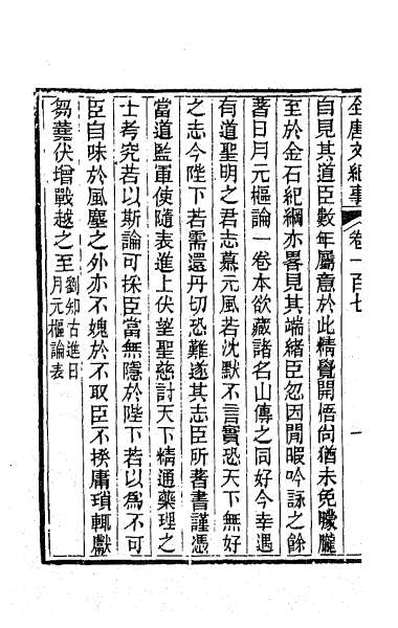 全唐文紀事 卷一百七 一
自見其道臣數年屬意於此精覺開悟尙猶未免朦朧
至於金石紀綱亦畧見其端緒臣忽因閒暇吟詠之餘
著日月元樞論一卷本欲藏諸名山傳之同好今幸遇
有道聖明之君志慕元風若沈默不言實恐天下無好
之志今陛下若需還丹切恐難遂其志臣所著書謹憑
當道監軍使隨表進上伏望聖慈討天下精通藥理之
士考究若以斯論可採臣當無隱於陛下若以爲不可
臣自味於風塵之外亦不媿於不取臣不揆庸瑣輒獻
芻蕘伏增戰越之至劉知古進日月元樞論表